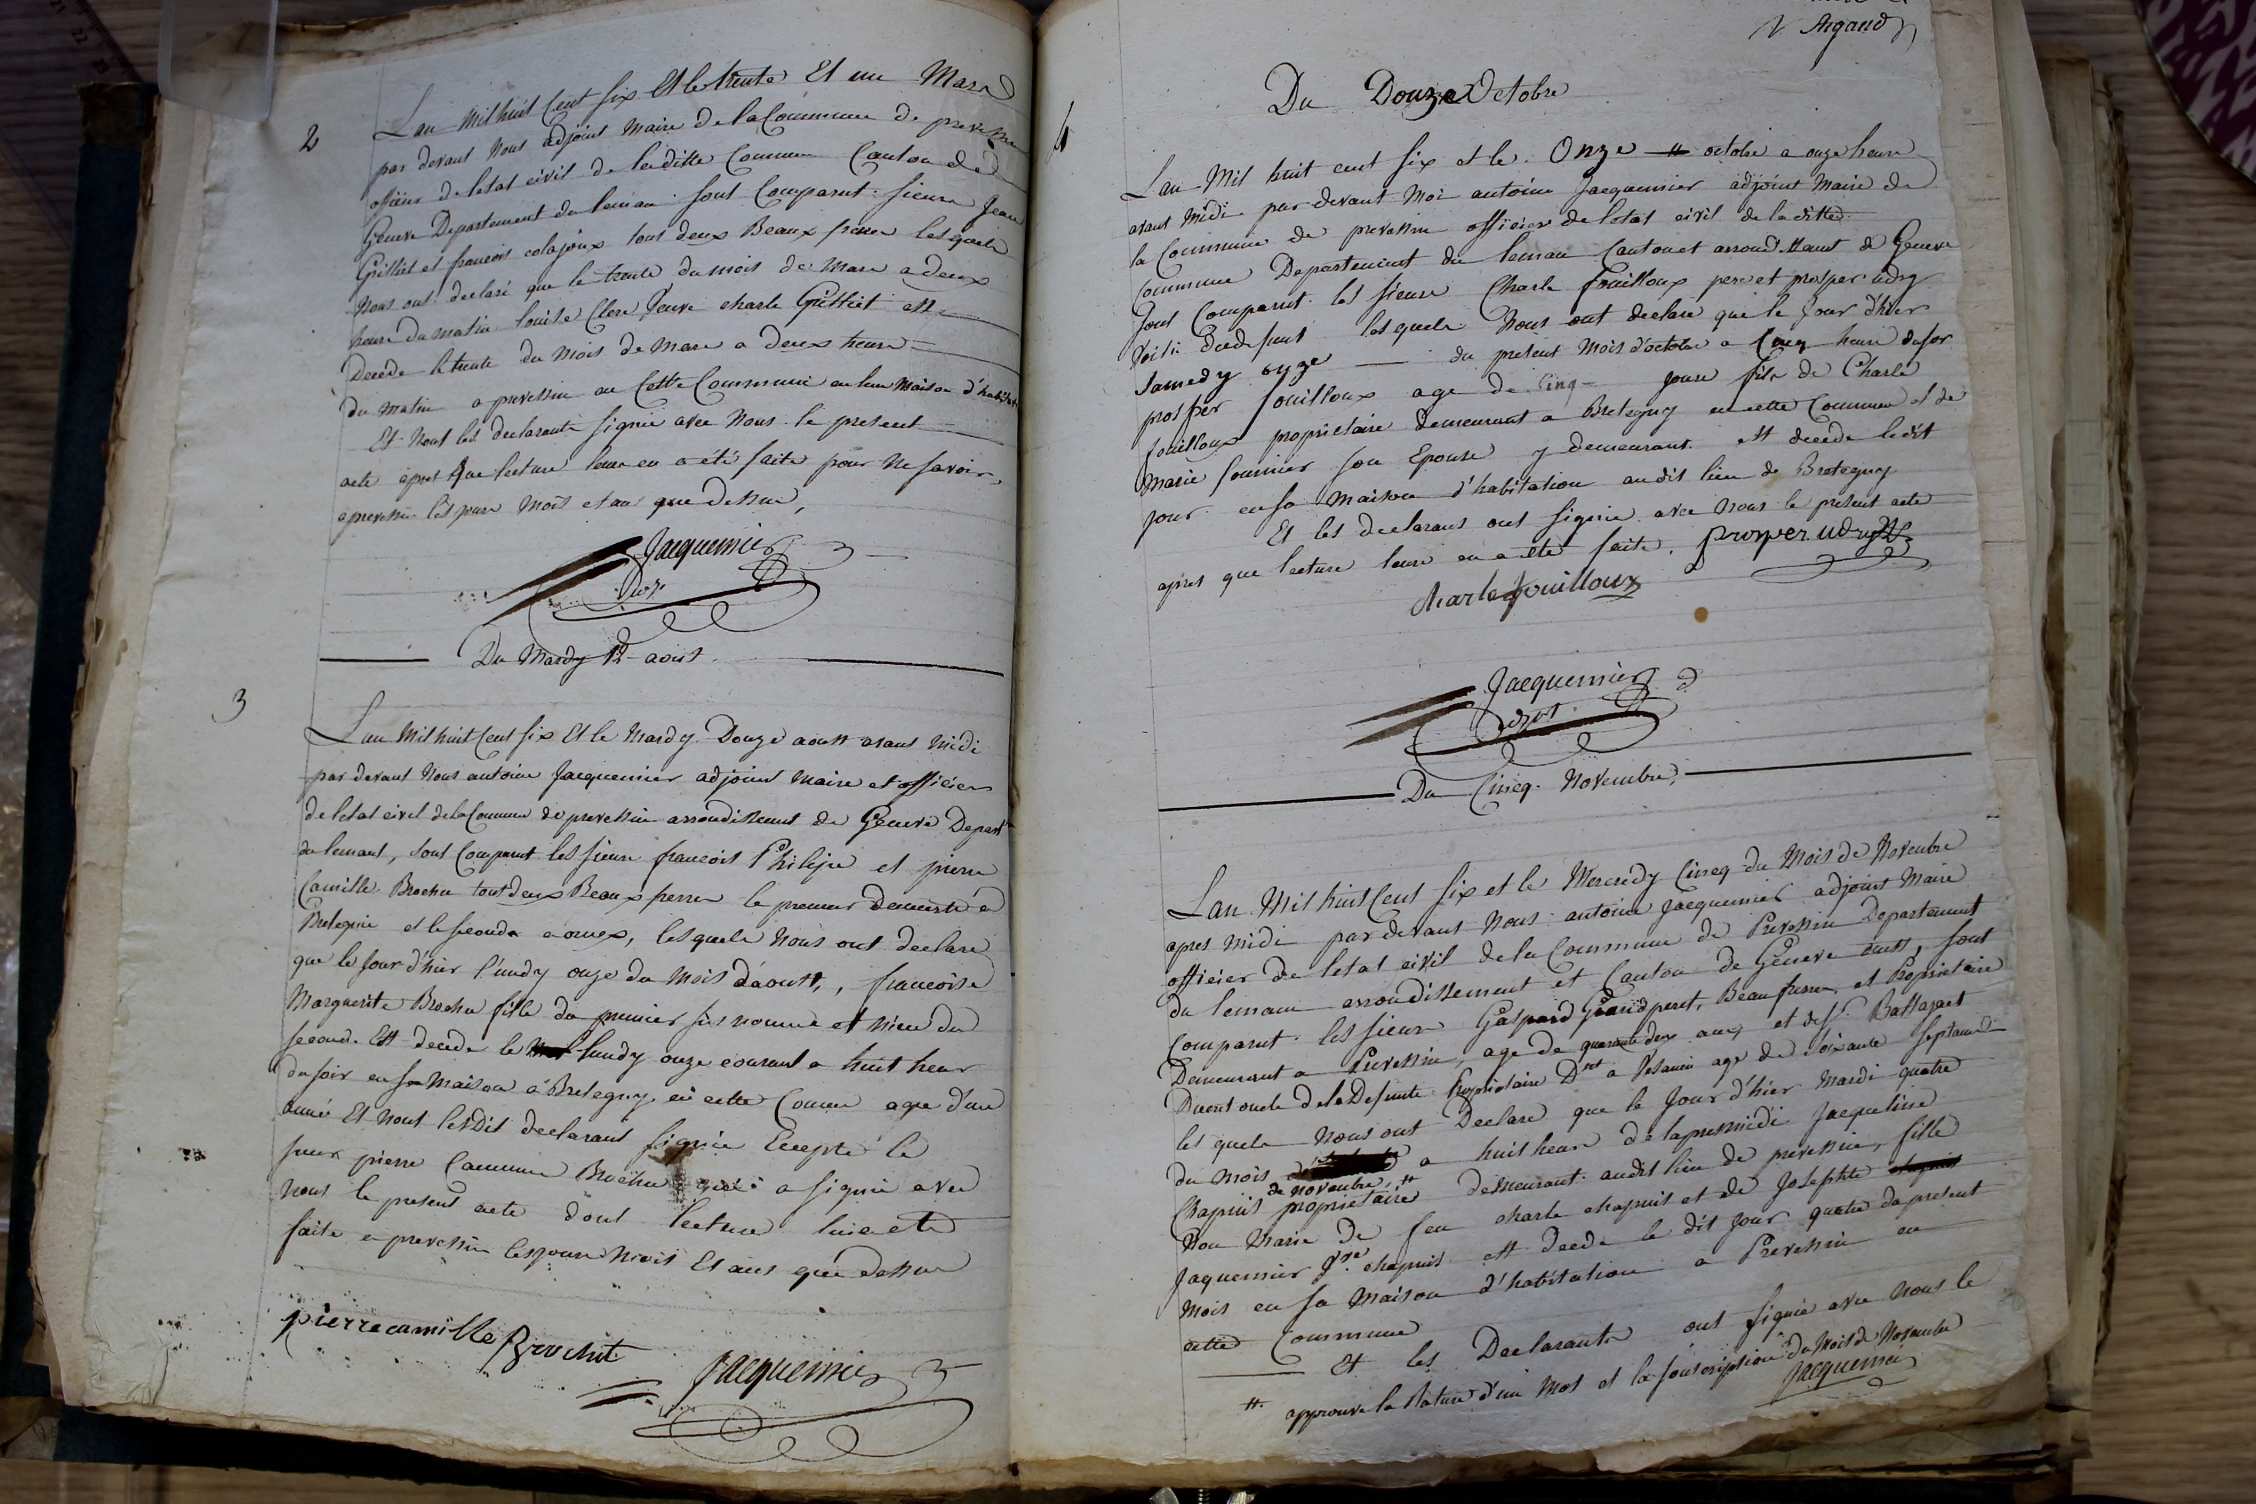 2
Lan Mil huit Cent six Et le trente Et un Mars
par devant Nous adjoint Maire de la Commune de prevessin
officier de letat civil de laditte Commune Canton de
Geneve Departement du leman sont Comparut sieurs Jean
Grilliet et francois colajoux tous deux Beaux freres lesquels
Nous ont declaré que le trente du mois de Mars a deux
heure du matin louise Clerc veuve charle Grilliet est
Decede le trente du Mois de Mars a deux heure
du matin a prevessin au Cette Commune en leur Maison d'habitat
Et Nout les declarants signié avec Nous le present
acte apret que lecture leur en a été faite pour Ne savoir
a prevessin les jours Mois et an que dessus,
Jacquemier
Du Mardy 12 aout
3
Lan Mil huit Cent six Et le Mardy Douze aoutt avant midi
par devant Nous antoine Jacquemier adjoint Maire et officier
de letat civil de la Commune de prevessin arrondissement de Geneve Depart
du lemant, sont Comparut les sieurs francois Philipe et pierre
Camille Brochu tout deux Beaux freres le premier demeurt a
Bretegnie et le second a ornex, lesquels Nous ont declare
que le Jour d'hier lundy onze du Mois d'aoutt, francoise
Marguerite Brochu fille du premier sus nommé et niece du
second Est decede le lundy onze courant a huit heur
du soir en sa Maison a Bretegny en cette Comune age d'une
anné Et Nont lesdit declarant signié Ecepté le
sieur pierre Cammille Brochu qui a signié avec
nous le present acte dont lecture lui a eté
faite a prevessin les jours Mois Et ans que dessus
pierre camille Brochut
Jacquemier
V Argand
Du Douze Octobre
4
Lan Mil huit cent six et le Onze octobre a onze heure
avant Midi par devant Moi antoine Jacquemier adjoint Maire de
la Commune de prevessin officier de letat civil de la ditte
Commune Departement du leman Canton et arrondissement de Geneve
Sont Comparut les sieurs Charle fouilloux pere et prosper udry
voisin du defunt lesquels Nous ont declaré que le Jour d'hier
Samedy onze du present Mois d'octobre a Cinq heure du soir
prosper fouilloux age de Cinq jours fils de Charle
fouilloux proprietaire demeurant a Bretegny en cette Commune et de
Marie fournier son Epouse y demeurant est decede ledit
jour en sa Maison d'habitation audit lieu de Bretegny
Et les declarans ont signié avec Nous le present acte
apres que lecture leur en a été faite. prosper udry
charle fouilloux
Jacquemier
Du Cincq Novembre
Lan Mil huit Cent six et le Mercredy Cincq du Mois de Novembre
apres Midi par devant Nous antoine Jacquemier adjoint Maire
officier de letat civil de la Commune de Prevessin Departement
du leman arrondissement et Canton de Géneve, sont
Comparut les sieurs Gaspard Grandperet, Beau frere, et Proprietaire
Demeurant a Prevessin, age de quarante deux ans et
oncle de la Defunte Proprietaire Dmt a age de soixante Sept ans
lesquels Nous ont Declare que le Jour d'hier Mardi quatre
du Mois a huit heure de lapresmidi Jacqueline
de Novembre, #
Chapuis proprietaire demeurant audit lieu de prevessin, fille
Non Marie de feu charle chapuis et de Josephte chapuis
Jaquemier vve chapuis est decede le dit Jour quatre du present
Mois en sa Maison d'habitation a Prevessin en
cette Commune
Et les Declarants ont signié avec Nous le
# approuve la Rature d'un Mot et la souscription du Mois de Novembre
Jacquemier